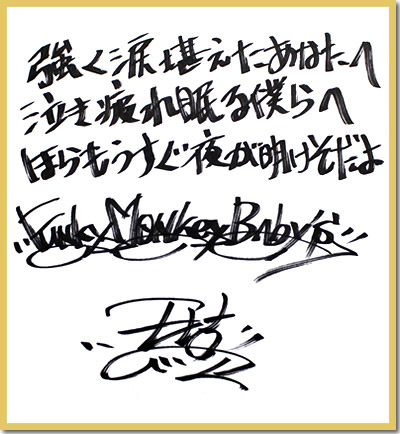 強く涙堪えたあなたへ
泣き疲れ眠る僕らへ
ほらもうすぐ夜が明けそだよ
Funky Monkey Baby's